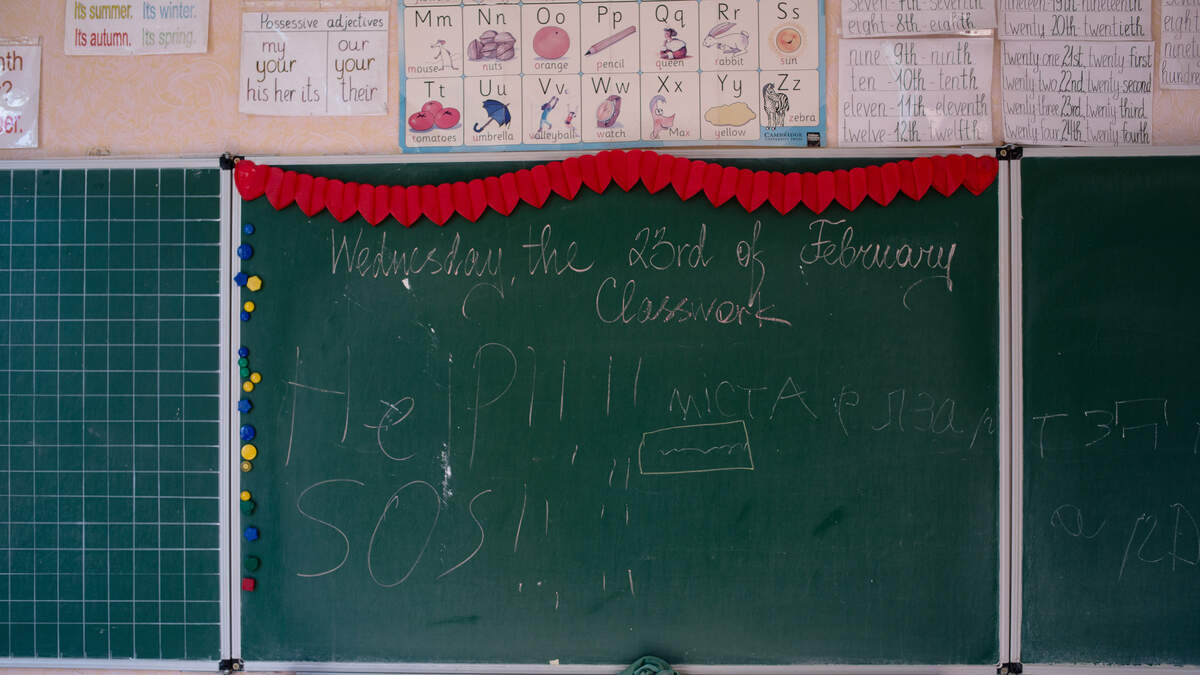 Its summer. Its winter.
Its autumn. Its spring.
Possessive adjectives
my
your
his her its
our
your
their
Mm Nn Oo Pp Qq Rr Ss
mouse nuts orange pencil queen rabbit sun
Tt Uu Vv Ww Xx Yy Zz
tomatoes umbrella volleyball watch Max yellow zebra
CAMBRIDGE
seven - 7th - seventh
eight - 8th - eighth
nine - 9th - ninth
ten - 10th - tenth
eleven - 11th - eleventh
twelve - 12th - twelfth
nineteen - 19th - nineteenth
twenty 20th twentieth
twenty one 21st, twenty first
twenty two 22nd, twenty-second
twenty three 23rd, twenty third
twenty four 24th, twenty fourth
Wednesday, the 23rd of February
Classwork
Help!!!!
міста
SOS!!!!